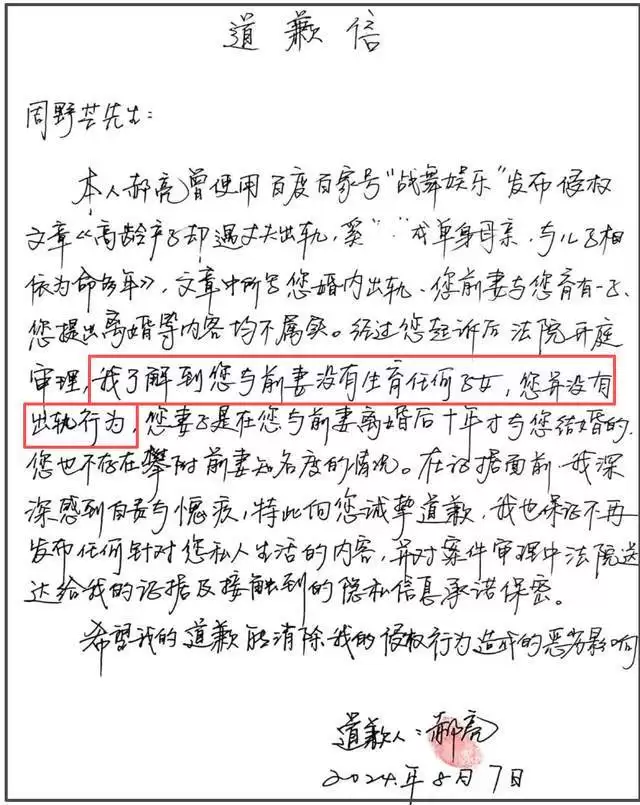 道歉信
周野芒先生：
本人郝亮曾使用百度百家号“战舞娱乐”发布侵权
文章《高龄产子却遇丈夫出轨，奚” ”戏单身母亲，与儿子相
依为命多年》，文章中所写您婚内出轨、您前妻与您育有一子、
您提出离婚等内容均不属实。经过您起诉后法院开庭
审理，我了解到您与前妻没有生育任何子女，您并没有
出轨行为，您妻子是在您与前妻离婚后十年才与您结婚的，
您也不存在攀附前妻知名度的情况。在证据面前，我深
深感到自责与愧疚，特此向您诚挚道歉，我也保证不再
发布任何针对您私人生活的内容，并对案件审理中法院送
达给我的证据及接触到的隐私信息承诺保密。
希望我的道歉能消除我的侵权行为造成的恶劣影响
道歉人：郝亮
2024年8月7日